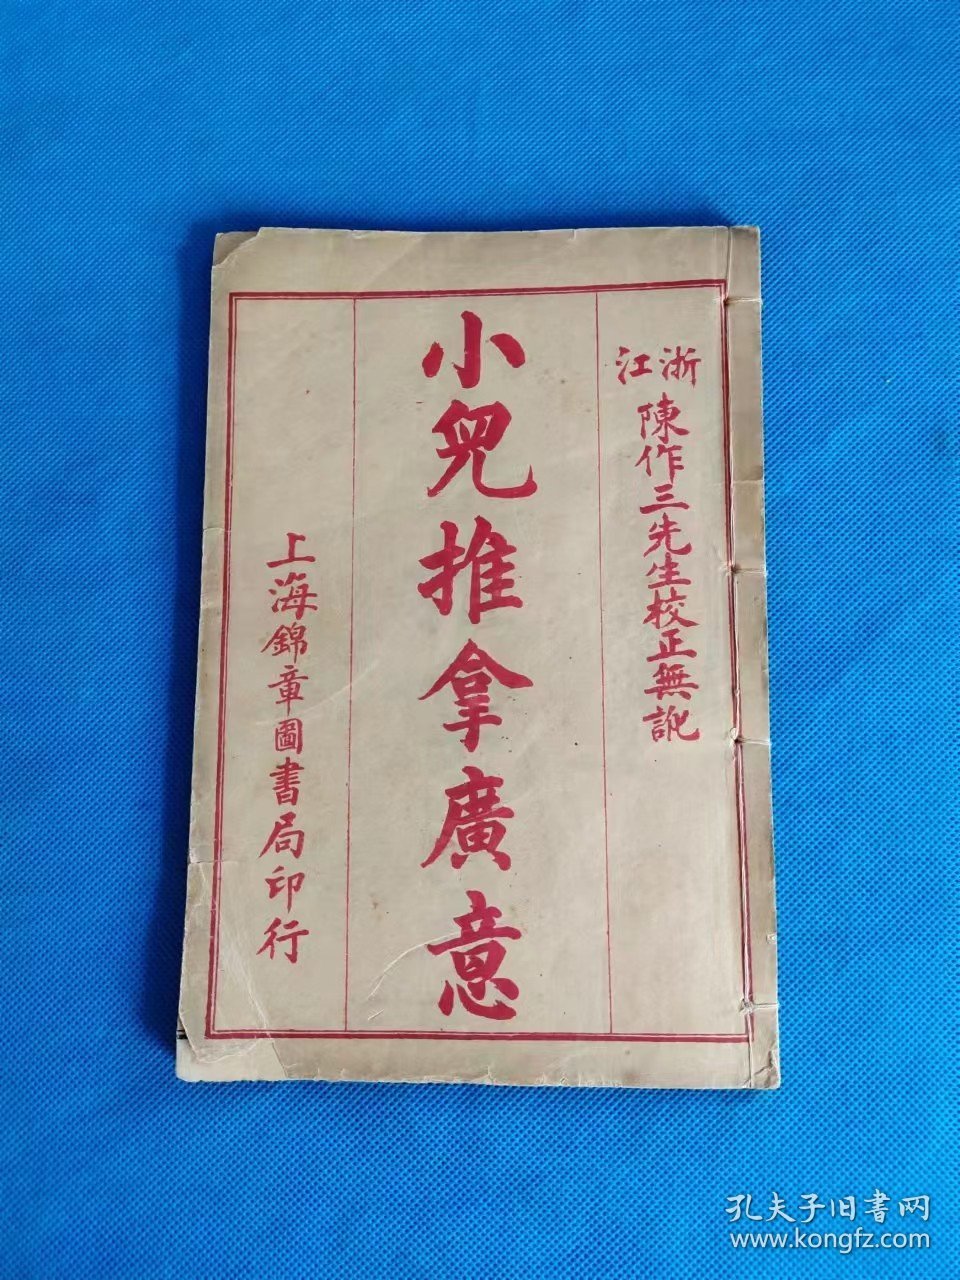 浙江陳作三先生校正無訛
小兒推拿廣意
上海錦章圖書局印行
孔夫子旧書网
www.kongfz.com